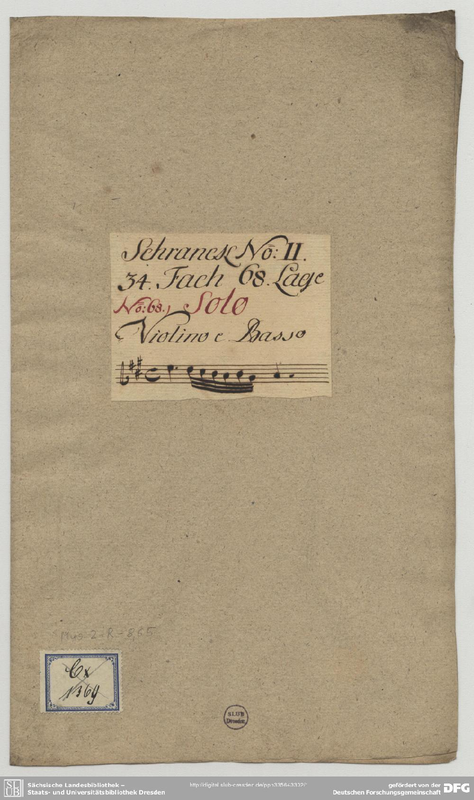 Schranck No: II.
34. Fach 68. Lage
No: 68.) Solo
Violino e Basso
Mus 2-R-8,65
Cx
1369
SLUB
Dresden
Sächsische Landesbibliothek –
Staats- und Universitätsbibliothek Dresden
gefördert von der
Deutschen Forschungsgemeinschaft
DFG